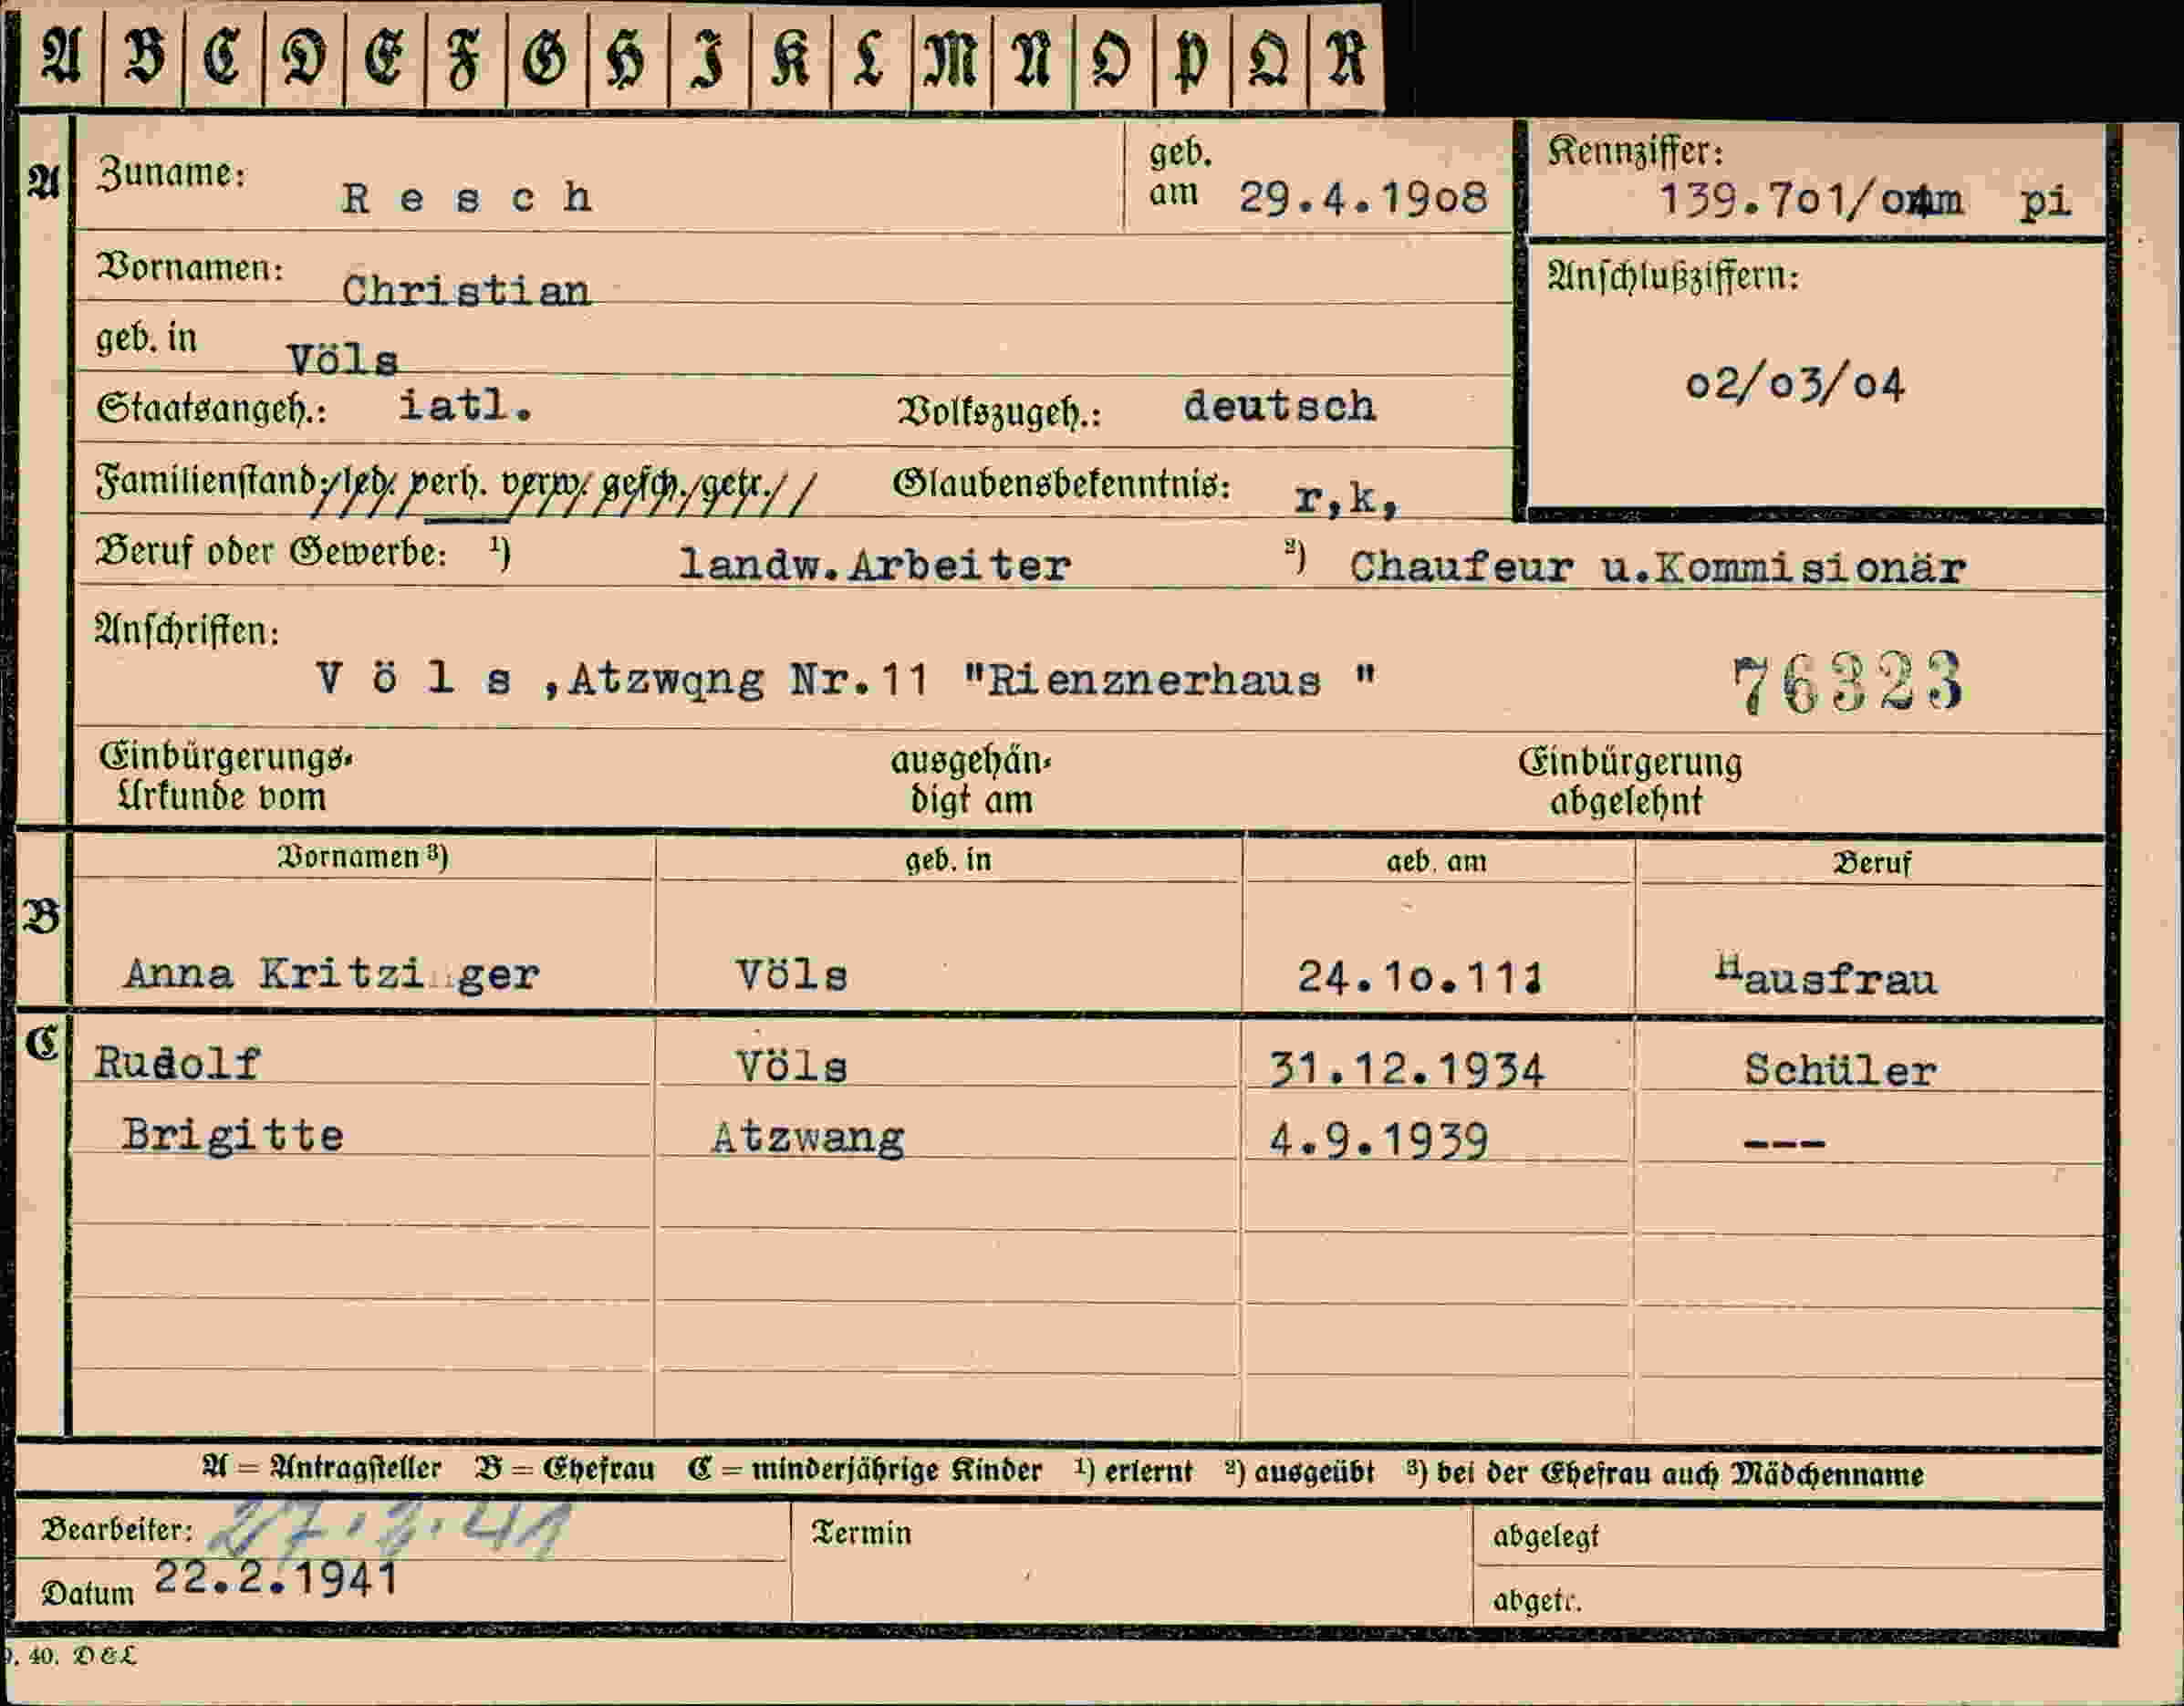 A B C D E F G H I K L M N O P Q R
A Zuname: Resch geb. am 29.4.1908 Kennziffer: 139.701/ pi
Vornamen: Christian Anschlußziffern:
geb. in Völs 02/03/04
Staatsangeh.: iatl. Volkszugeh.: deutsch
Familienstand: led. verh. verw. gesch. getr. Glaubensbekenntnis: r,k,
Beruf oder Gewerbe: ¹) landw.Arbeiter ²) Chaufeur u.Kommisionär
Anschriften:
Völs,Atzwqng Nr.11 "Rienznerhaus " 76323
Einbürgerungs- ausgehän- Einbürgerung
Urkunde vom digt am abgelehnt
Vornamen ³) geb. in geb. am Beruf
B
Anna Kritzinger Völs 24.10.111 Hausfrau
C Rudolf Völs 31.12.1934 Schüler
Brigitte Atzwang 4.9.1939 ---
A = Antragsteller B = Ehefrau C = minderjährige Kinder ¹) erlernt ²) ausgeübt ³) bei der Ehefrau auch Mädchenname
Bearbeiter: 27.2.41 Termin abgelegt
Datum 22.2.1941 abgetr.
40. D&L